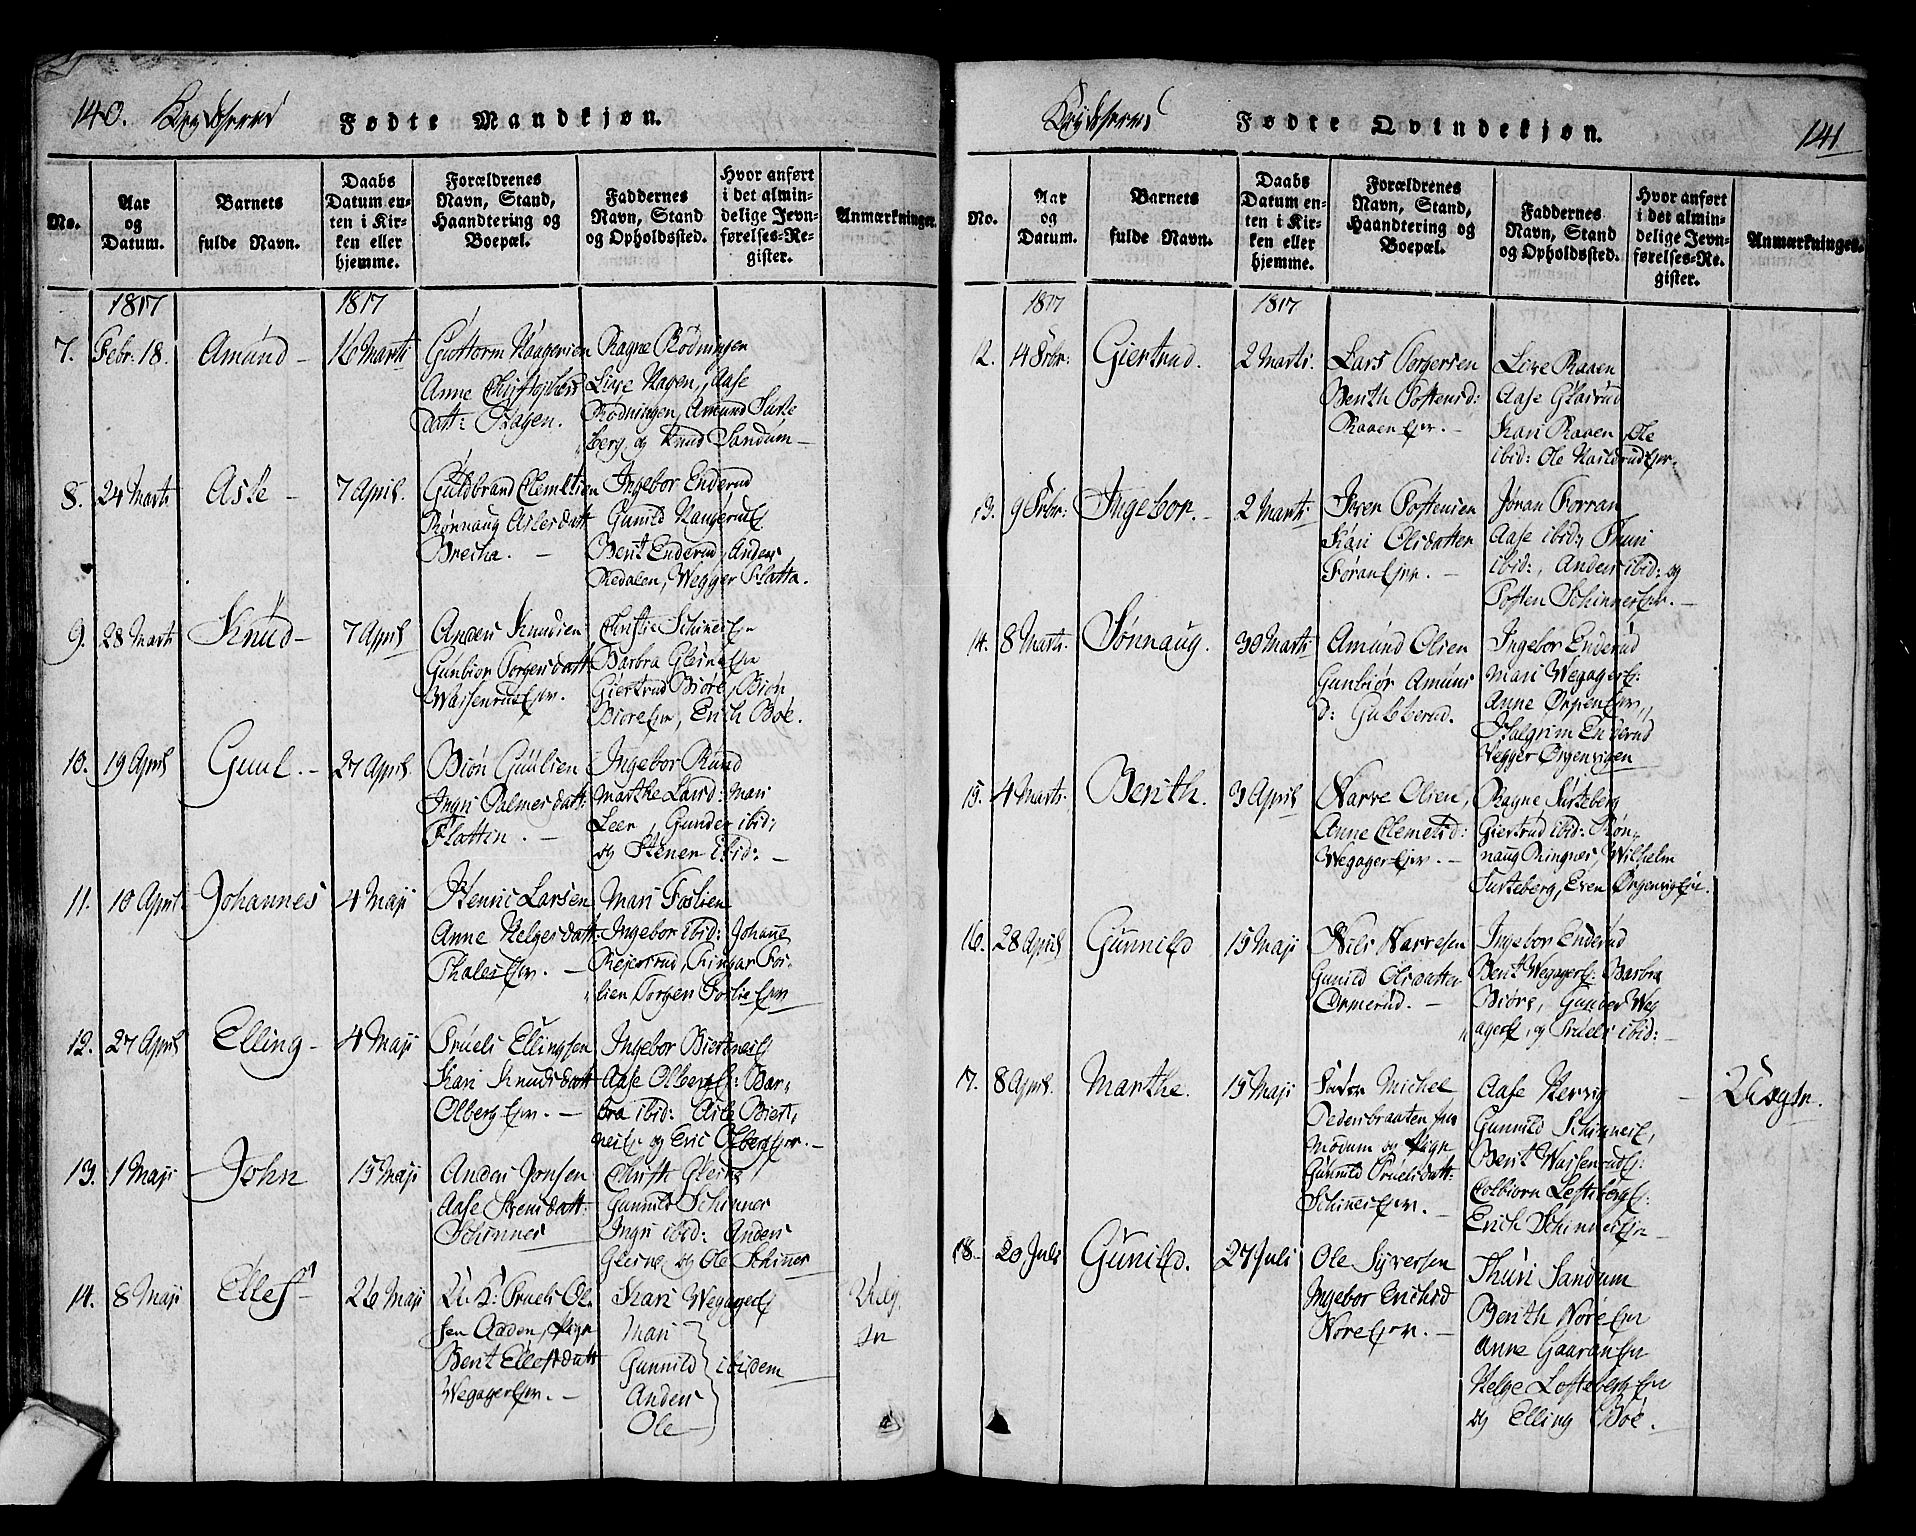 140. Krydsherred Fødte Mandkjøn.
No.
Aar og Datum.
Barnets fulde Navn.
Daabs Datum enten i Kirken eller hjemme.
Forældrenes Navn, Stand, Haandtering og Boepæl.
Faddernes Navn, Stand og Opholdssted.
Hvor anført i det almindelige Jevnførelses-Register.
Anmærkninger.
1817 1817
7. Febr: 18. Amund 16 Marti
Guttorm Haagensen
Anne Christophers
datt: Hagen.
Ragne Rødningen
Live Hagen, Aase
Rødningen, Amund Surte
berg og Knud Sandum
8. 24 Marti Asle 7 April.
Guldbrand Clemetsen
Rønnaug Aslesdatt
Brecha.
Ingebor Enderud
Gunild Haugerud
Berit Enderud, Anders
Medalen, Wegger Slatta.
9. 28 Marti Knud 7 April
Anders Knudsen
Gunbior Torgersdatt
Wassenrud
Christie Schiner
Barbra Glesne
Giertrud Biøre, Biøn
Biøre, Erich Bøe.
10. 19 April Guul. 27 April
Biøn Guulsen
Ingri Palmersdatt
Slattin.
Ingebor Rund
Marthe Land: Mari
Leer, Gunder ibid:
og Stener ibid:
11. 10 April Johannes 4 Maji
Henric Larsen
Anne Helgesdatt:
Thales
Mari Foslien
Ingebor ibid: Johanne
Rejersrud, Ringar Fos-
lien, Torgen Foslie
12. 27 April Elling 4 Maji
Truels Ellingsen
Kari Knudsdatt
Olberg
Ingebor Biertnes
Aase Olberg: Bar-
bra ibid: Asle Biert,
nes og Eric Olberg
13. 1 Maji John 15 Maji
Anders Jonsen
Aase Svensdatt:
Schinnes
Christi Glesne
Gunnild Schinner
Ingri ibid: Anders
Glesne og Ole Schiner
14. 8 Maji Ellef 26 Maji
U: K: Truels Ol-
sen Aaden, Pige
Berit Ellefsdatt
Wegager
Kari Wegager
Mari
Gunnild ibidem
Anders
Ole
Uægt
Krydsherred Fødte Qvindekjøn. 141
No.
Aar og Datum.
Barnets fulde Navn.
Daabs Datum enten i Kirken eller hjemme.
Forældrenes Navn, Stand, Haandtering og Boepæl.
Faddernes Navn, Stand og Opholdssted.
Hvor anført i det almindelige Jevnførelses-Register.
Anmærkninger.
1817 1817
12. 4 Febr: Giertrud. 2 Marti
Lars Torgersen
Berith Tostensd:
Raaen
Live Raaen
Aase Glasrud
Kari Raaen, Ole
ibid: Ole Haildrud
13. 9 Febr: Ingebor. 2 Marti
Iver Tostensen
Kari Olsdatter
Foran
Jøran Forran
Aase ibid, Thuri
ibid:, Anders ibid: og
Tosten Schinner
14. 8 Marti. Sønnaug. 30 Marti
Amund Olsen
Gunbiør Amuns
d: Gubberud.
Ingebor Enderud
Mari Wegager:
Anne Ørpen,
Halgrim Enderud
Vegger Ørgenvigen
15. 4 Marti. Berith. 3 April
Narve Olsen,
Anne Clemetsd:
Wegager
Ragne Surteberg
Giertrud ibid: Røn,
naug Ringnes Wilhelm
Surteberg, Even Ørgenvig
16. 28 April Gunnild 15 Maji
Nils Narvesen
Gunild Olsdatter
Ormerud.
Ingebor Enderud
Berit Wegager: Barbra
Biøre, Gunder Weg
ager, og Truels ibid:
17. 8 April. Marthe. 15 Maji
Fader Michel
Dedersbraaten fra
Modum og Pigen
Gunnild Truelsdatt:
Schinnes
Aase Hervig
Gunnild Schinnes,
Berit Wassenrud:
Colbiørn Lofteberg:
Erich Schinner
Uægte.
18. 20 Juli Gunild. 27 Juli
Ole Syversen
Ingebor Erichsd
Nore
Thuri Sandum
Berith Nore
Anne Gaaran
Helge Lofteberg
og Elling Bøe.